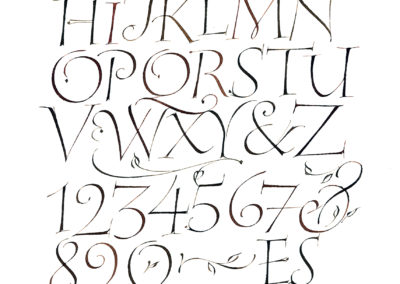 HIJKLMN
OPQRSTU
VWXY&Z
1234567&
890 ES